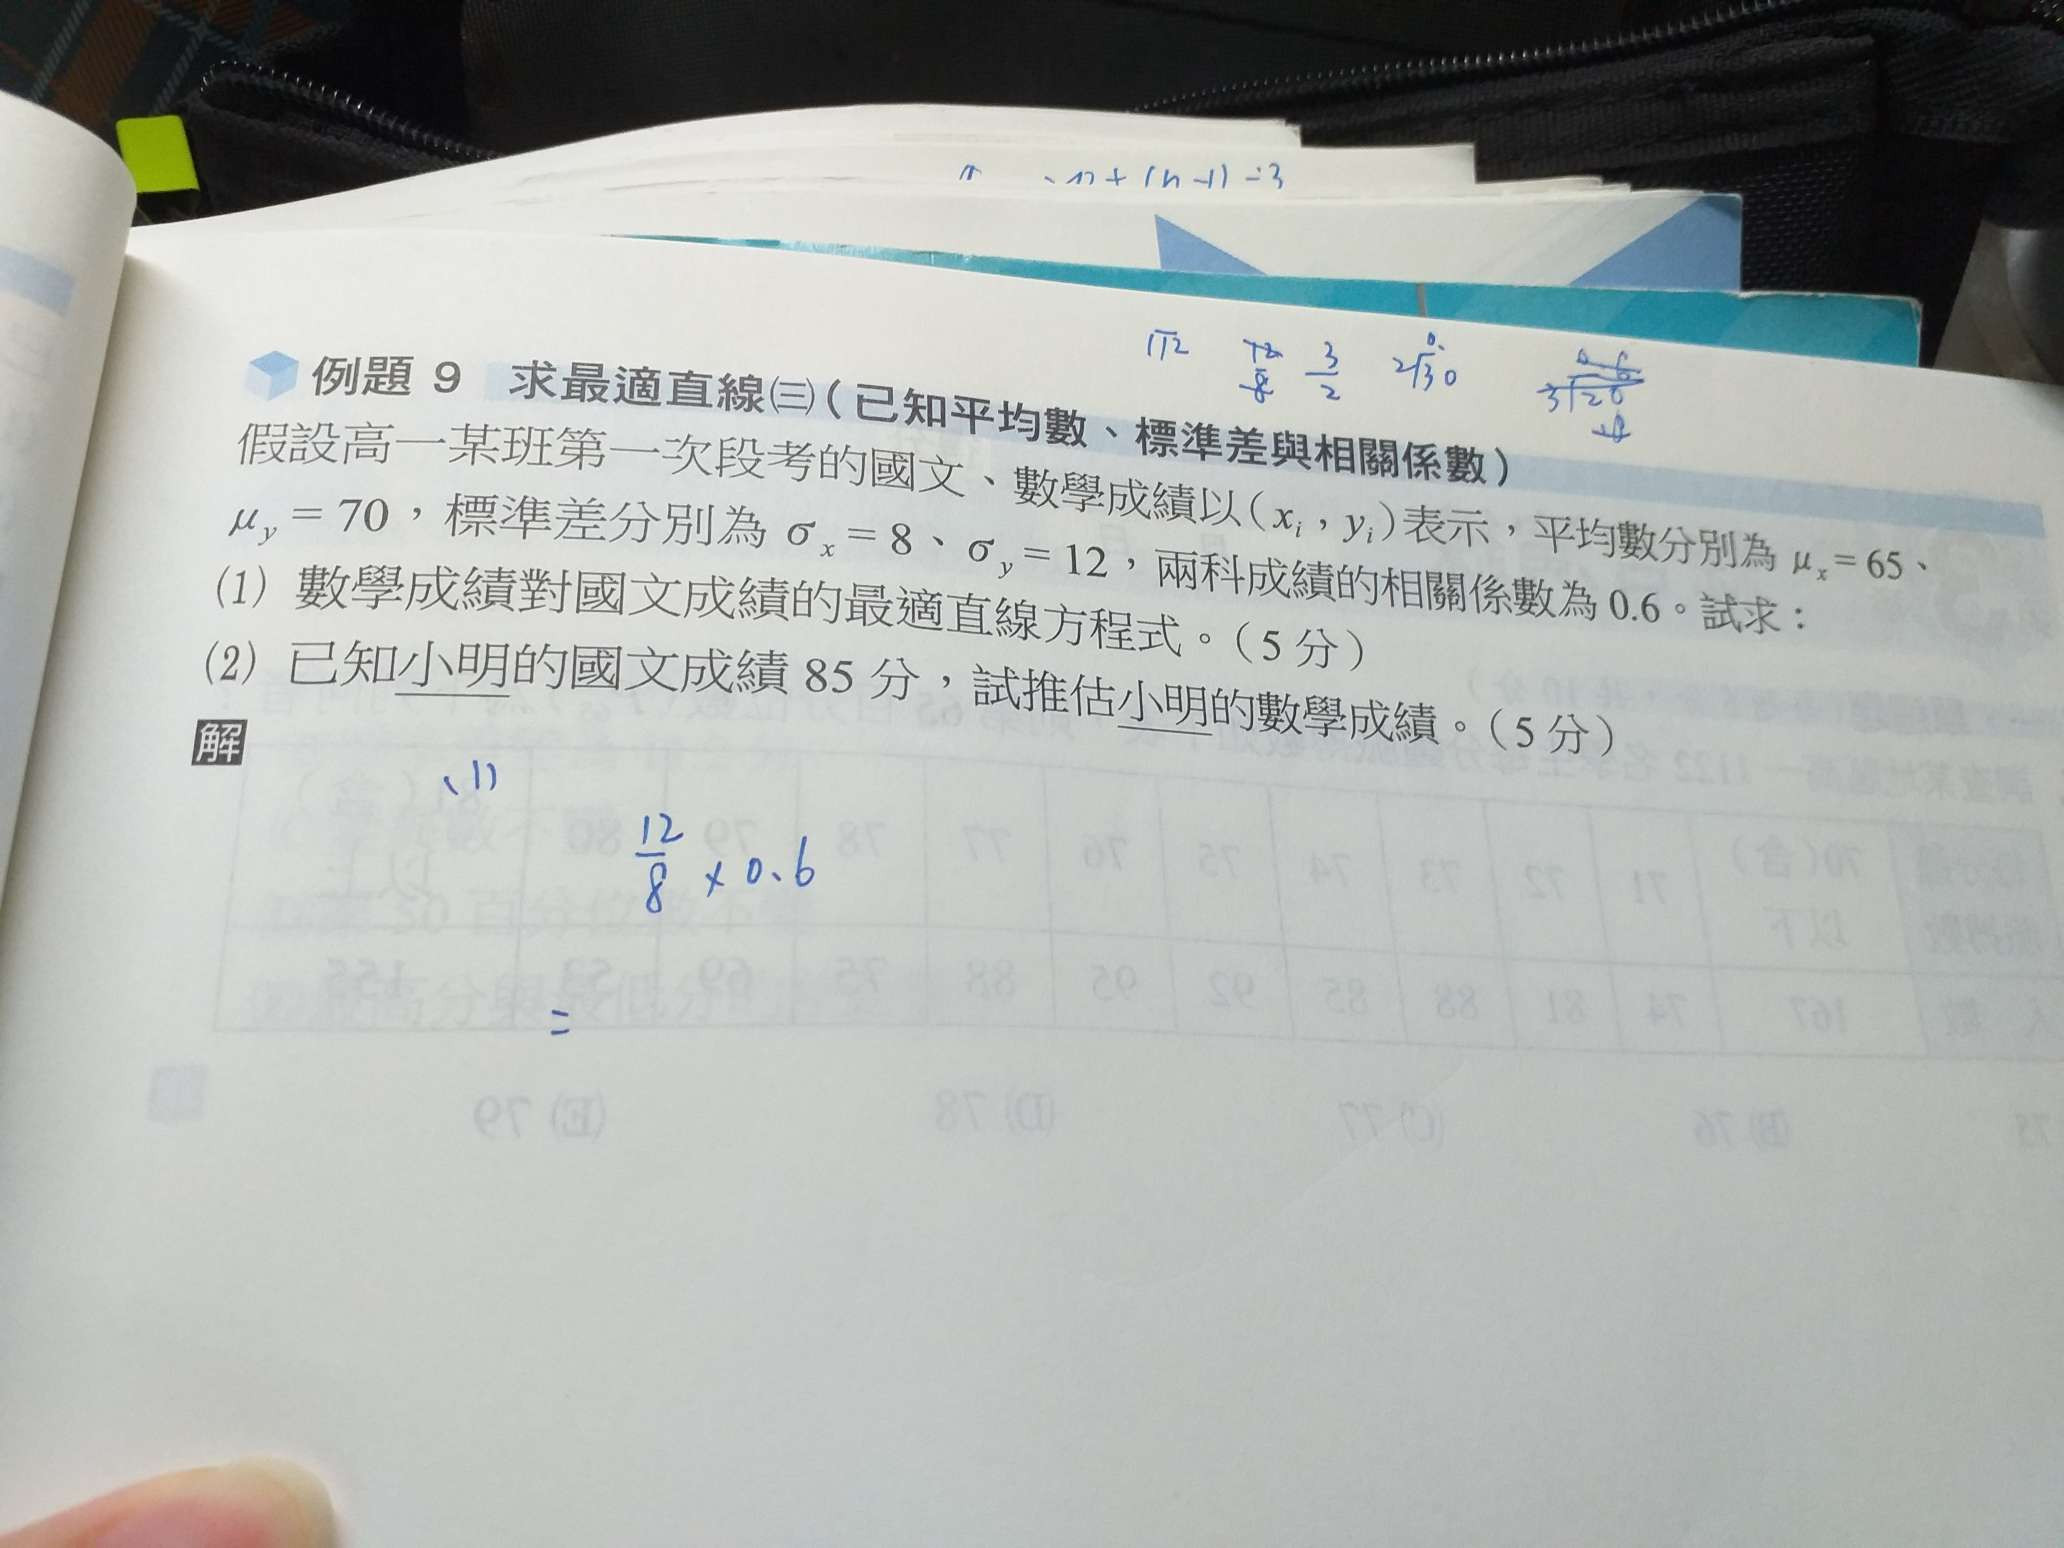 +(n-1)÷3
1.2 12/8 3/2 2√30
例題 9 求最適直線㈢(已知平均數、標準差與相關係數)
假設高一某班第一次段考的國文、數學成績以(xᵢ,yᵢ)表示,平均數分別為 μₓ=65、
μy=70,標準差分別為 σₓ=8、σy=12,兩科成績的相關係數為 0.6。試求:
(1) 數學成績對國文成績的最適直線方程式。(5 分)
(2) 已知小明的國文成績 85 分,試推估小明的數學成績。(5 分)
解
(1)
12/8 × 0.6
=